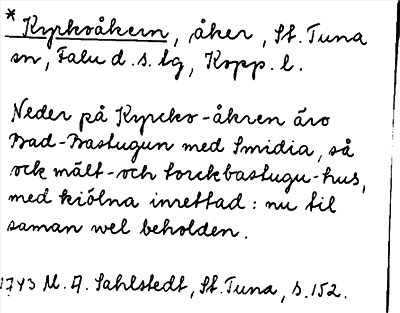 * Kyrkoåkern, åker, St. Tuna
sn, Falu d. s. lg, Kopp. l.
Neder på Kyrcko-åkren äro
Bad-Bastugun med Smidia, så
ock mält- och torckbastugu-hus,
med kiölna inrettad: nu til
saman wel beholden.
1743 M. A. Sahlstedt, St. Tuna, s. 152.